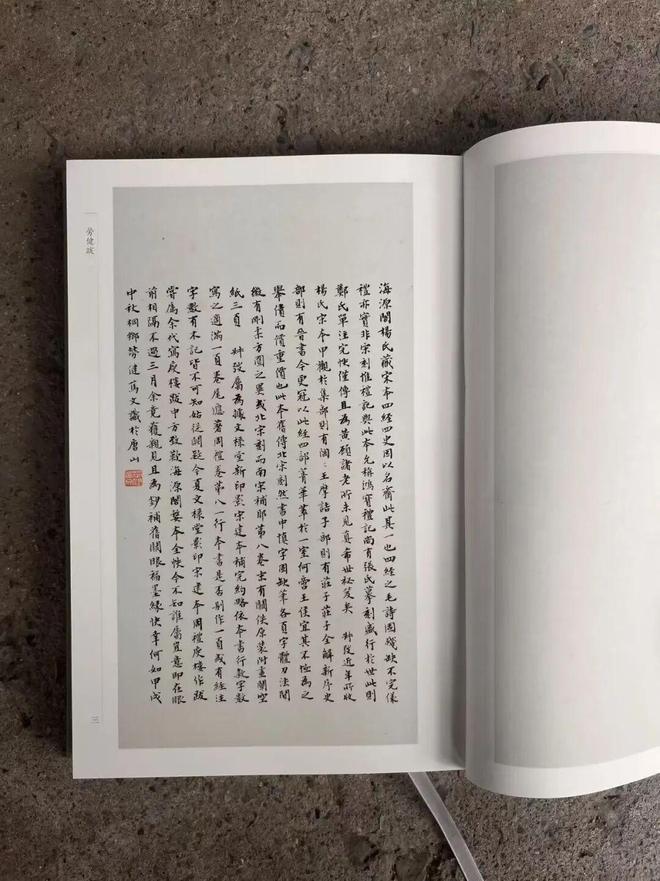 海源閣楊氏藏宋本四經四史因以名齋此其一也四經之毛詩固殘缺不完儀
禮亦實非宋刻惟禮記與此本允稱鴻寶禮記尚有張氏摹刻盛行於世此則
鄭氏單注完帙僅傳且為黃顧諸老所未見真希世祕笈矣 叔弢近年所收
楊氏宋本甲觀於集部則有陶王摩詰子部則有莊子莊子全解新序史
部則有晉書今更冠以此經四部菁華萃於一室何啻王侯宜其不恡為之
舉債而償重價也此本舊傳北宋刻然書中慎字固缺筆各頁字體刀法間
微有剛柔方圓之異或北宋刻而南宋補耶第八卷末有闕佚原裝附畫闌空
紙三頁 叔弢屬為據文祿堂新印影宋建本補完約略依本書行款字數
寫之適滿一頁卷尾應著周禮卷第八一行本書是否別作一頁或有經注
字數有木記皆不可知姑從闕疑今夏文祿堂影印宋建本周禮庋樓作跋
嘗屬余代寫庋樓跋中方致歎海源閣蜀本全帙今不知誰屬豈意即在眼
前相隔不過三月余竟獲親見且為鈔補舊闕眼福墨緣快幸何如甲戌
中秋桐鄉勞健篤文識於唐山
勞健跋
三